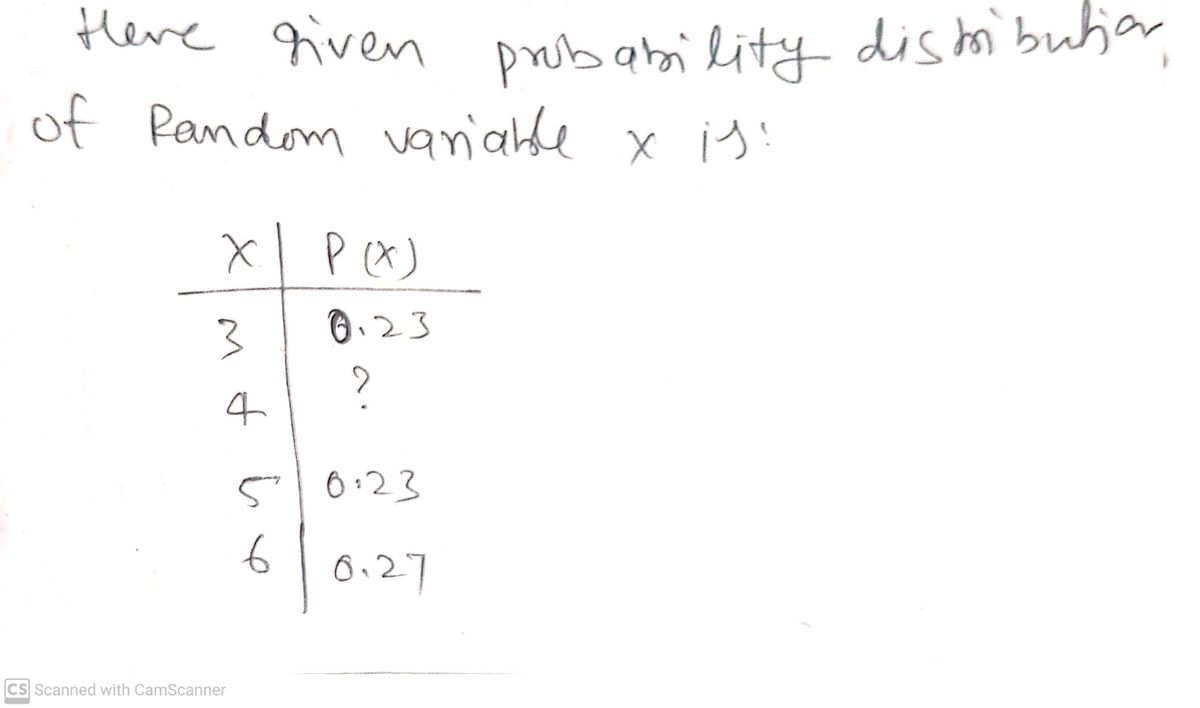 Here given probability distribution
of Random variable x is:
X P(X)
3 0.23
4 ?
5 0.23
6 0.27
CS Scanned with CamScanner